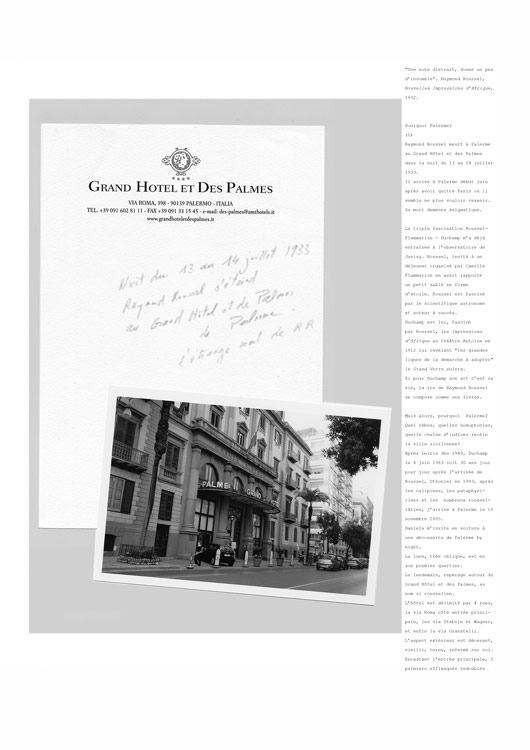 GRAND HOTEL ET DES PALMES
VIA ROMA, 398 - 90139 PALERMO - ITALIA
TEL. +39 091 602 81 11 - FAX +39 091 33 15 45 - e-mail: des-palmes@amthotels.it
www.grandhoteletdespalmes.it
Nuit du 13 au 14 juillet 1933
Raymond Roussel s'éteint
au Grand Hôtel et de Palmes
de Palerme.
l'étrange mot de RR
PALME GRAND
"Une note distrait, donne un peu
d'insomnie". Raymond Roussel,
Nouvelles Impressions d'Afrique,
1932.
Pourquoi Palerme?
(1)
Raymond Roussel meurt à Palerme
au Grand Hôtel et des Palmes
dans la nuit du 13 au 14 juillet
1933.
Il arrive à Palerme début juin
après avoir quitté Paris où il
semble ne plus vouloir revenir.
Sa mort demeure énigmatique.
La triple fascination Roussel-
Flammarion - Duchamp m'a déjà
entraînée à l'observatoire de
Juvisy. Roussel, invité à un
déjeuner organisé par Camille
Flammarion en avait rapporté
un petit sablé en forme
d'étoile. Roussel est fasciné
par le scientifique astronome
et auteur à succès.
Duchamp est lui, fasciné
par Roussel, les Impressions
d'Afrique au théâtre Antoine en
1912 lui révèlent "les grandes
lignes de la démarche à adopter"
le Grand Verre suivra.
Si pour Duchamp son art c'est sa
vie, la vie de Raymond Roussel
se compose comme ses livres.
Mais alors, pourquoi Palerme?
Quel rébus, quelles homophonies,
quelle chaîne d'indices recèle
la ville sicilienne?
Après Leiris dès 1949, Duchamp
le 4 juin 1963 soit 30 ans jour
pour jour après l'arrivée de
Roussel, Othoniel en 1993, après
les oulipiens, les pataphysi-
ciens et les nombreux roussel-
lâtres, j'arrive à Palerme le 10
novembre 2005.
Daniela m'invite en voiture à
une découverte de Palerme by
night.
La lune, très oblique, est en
son premier quartier.
Le lendemain, repérage autour du
Grand Hôtel et des Palmes, au
nom si roussellien.
L'hôtel est délimité par 4 rues,
la via Roma côté entrée princi-
pale, les via Stabile et Wagner,
et enfin la via Granatelli.
L'aspect extérieur est décevant,
vieilli, terne, refermé sur soi.
Encadrant l'entrée principale, 2
palmiers efflanqués redoublés